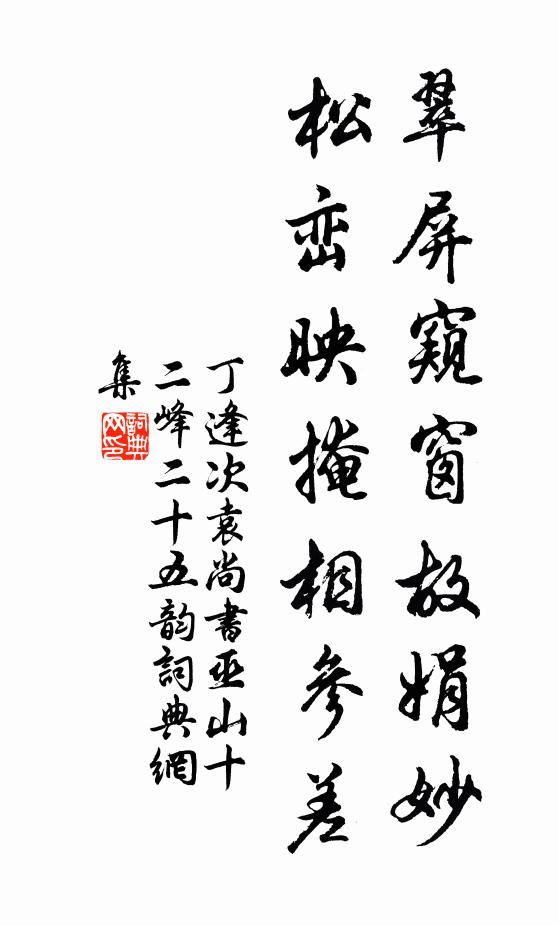 翠屏窺窗故娟妙
松峦映掩相參差
丁逢次袁尚書巫山十
二峰二十五韵詞典網
集
詞典
网印